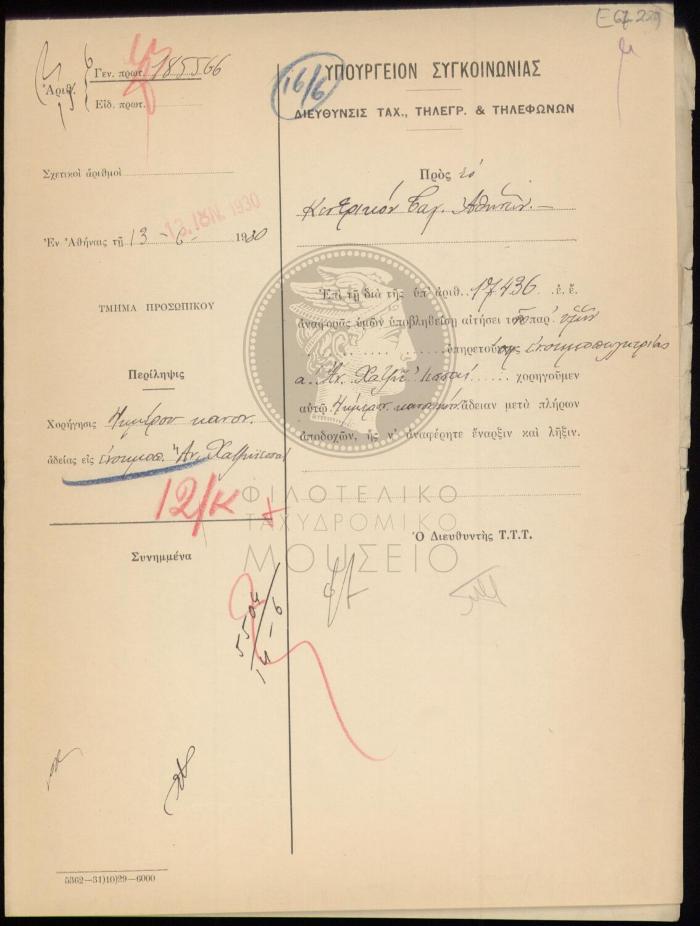 Ε 67.229
Ἀριθ.
Γεν. πρωτ. 185566
Εἰδ. πρωτ.
Σχετικοὶ ἀριθμοὶ
13 ΙΟΥΝ. 1930
Ἐν Ἀθήναις τῇ 13-6-1930
ΤΜΗΜΑ ΠΡΟΣΩΠΙΚΟΥ
Περίληψις
Χορήγησις Ἡμέρου κανον.
ἀδείας εἰς
12/Κ
Συνημμένα
5504
14-6
5362—31)10)29—6000
16/6
ΥΠΟΥΡΓΕΙΟΝ ΣΥΓΚΟΙΝΩΝΙΑΣ
ΔΙΕΥΘΥΝΣΙΣ ΤΑΧ., ΤΗΛΕΓΡ. & ΤΗΛΕΦΩΝΩΝ
Πρὸς τὸ
Κεντρικόν Ταχ. Ἀθηνῶν.—
Ἐπὶ τῇ διὰ τῆς ὑπ' ἀριθ. 17436 ἐ. ἔ.
ἀναφορᾶς ὑμῶν ὑποβληθείσῃ αἰτήσει τοῦ παρ' ὑμῖν
ὑπηρετούσης
χορηγοῦμεν
αὐτῷ ἄδειαν μετὰ πλήρων
ἀποδοχῶν, ἧς ν' ἀναφέρητε ἔναρξιν καὶ λῆξιν.
Ὁ Διευθυντὴς Τ.Τ.Τ.
ΦΙΛΟΤΕΛΙΚΟ
ΤΑΧΥΔΡΟΜΙΚΟ
ΜΟΥΣΕΙΟ